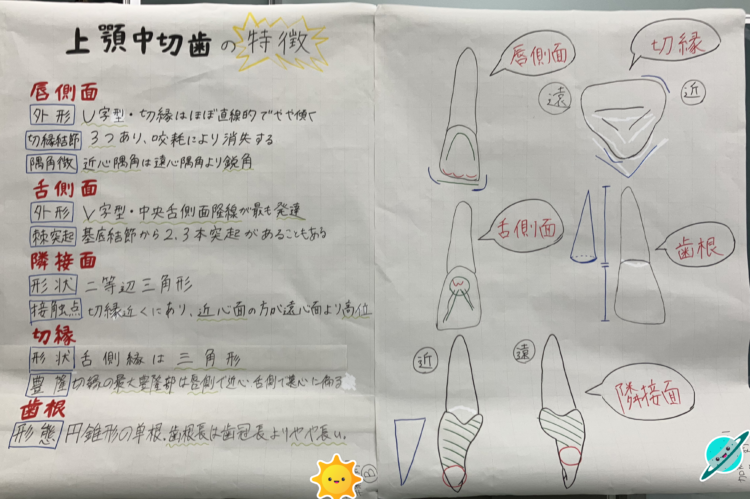 上顎中切歯の特徴
唇側面
外形 U字型・切縁はほぼ直線的でやや傾く
切縁結節 3つあり、咬耗により消失する
隅角徴 近心隅角は遠心隅角より鋭角
舌側面
外形 V字型・中央舌側面隆線が最も発達
棘突起 基底結節から2,3本突起があることもある
隣接面
形状 二等辺三角形
接触点 切縁近くにあり、近心面の方が遠心面より高位
切縁
形状 舌側縁は三角形
豊隆 切縁の最大豊隆部は唇側で近心 舌側で遠心に
歯根
形態 円錐形の単根。歯根長は歯冠長よりやや長い。
唇側面
切縁
遠
近
舌側面
歯根
近
遠
隣接面